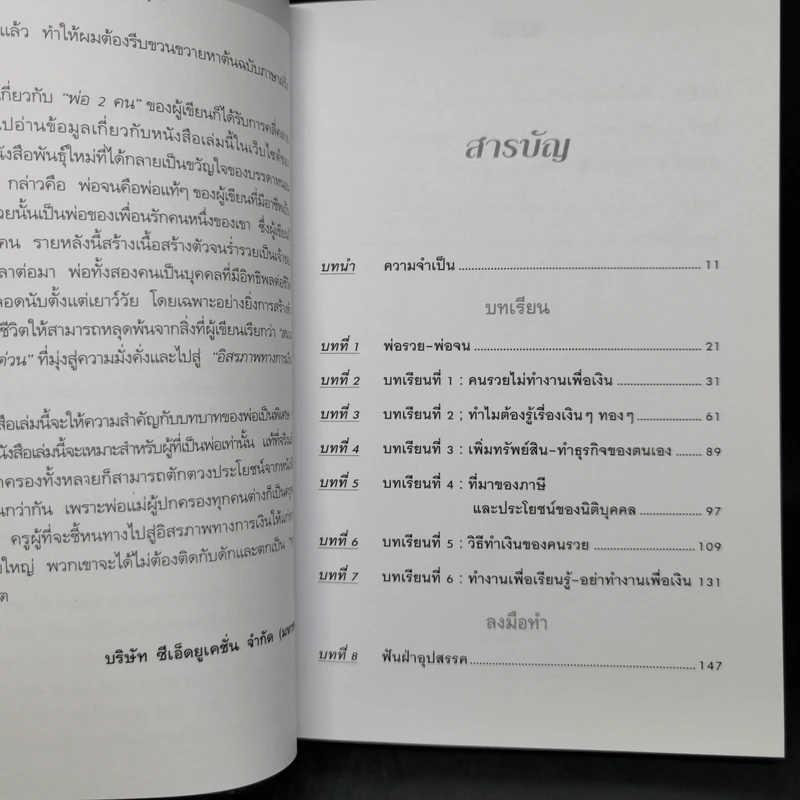 แล้ว ทำให้ผมต้องรีบขวนขวายหาต้นฉบับภาษาอังกฤษ
กี่ยวกับ "พ่อ 2 คน" ของผู้เขียนก็ได้รับการคลี่คลาย
ปอ่านข้อมูลเกี่ยวกับหนังสือเล่มนี้ในเว็บไซต์ของ
ังสือพันธุ์ใหม่ที่ได้กลายเป็นขวัญใจของบรรดา
กล่าวคือ พ่อจนคือพ่อแท้ๆ ของผู้เขียนที่มีอาชีพ
วยนั้นเป็นพ่อของเพื่อนรักคนหนึ่งของเขา ซึ่งผู้เขียน
คน รายหลังนี้สร้างเนื้อสร้างตัวจนร่ำรวยเป็นเจ้าของ
ลาต่อมา พ่อทั้งสองคนเป็นบุคคลที่มีอิทธิพลต่อชีวิต
ลอดนับตั้งแต่เยาว์วัย โดยเฉพาะอย่างยิ่งการสร้าง
ชีวิตให้สามารถหลุดพ้นจากสิ่งที่ผู้เขียนเรียกว่า
ด่วน" ที่มุ่งสู่ความมั่งคั่งและไปสู่ "อิสรภาพทางการเงิน
สือเล่มนี้จะให้ความสำคัญกับบทบาทของพ่อเป็นพิเศษ
ังสือเล่มนี้จะเหมาะสำหรับผู้ที่เป็นพ่อเท่านั้น แท้ที่จริง
กครองทั้งหลายก็สามารถตักตวงประโยชน์จากหนังสือ
นกว่ากัน เพราะพ่อแม่ผู้ปกครองทุกคนต่างก็เป็นครู
ครูผู้ที่จะชี้หนทางไปสู่อิสรภาพทางการเงินให้แก่
ใหญ่ พวกเขาจะได้ไม่ต้องติดกับดักและตกเป็น
ต
บริษัท ซีเอ็ดยูเคชั่น จำกัด (มหา
สารบัญ
บทนำ ความจำเป็น 11
บทเรียน
บทที่ 1 พ่อรวย-พ่อจน 21
บทที่ 2 บทเรียนที่ 1 : คนรวยไม่ทำงานเพื่อเงิน 31
บทที่ 3 บทเรียนที่ 2 ; ทำไมต้องรู้เรื่องเงินๆ ทองๆ 61
บทที่ 4 บทเรียนที่ 3 : เพิ่มทรัพย์สิน-ทำธุรกิจของตนเอง 89
บทที่ 5 บทเรียนที่ 4 : ที่มาของภาษี
และประโยชน์ของนิติบุคคล 97
บทที่ 6 บทเรียนที่ 5 : วิธีทำเงินของคนรวย 109
บทที่ 7 บทเรียนที่ 6 : ทำงานเพื่อเรียนรู้-อย่าทำงานเพื่อเงิน 131
ลงมือทำ
บทที่ 8 ฟันฝ่าอุปสรรค 147